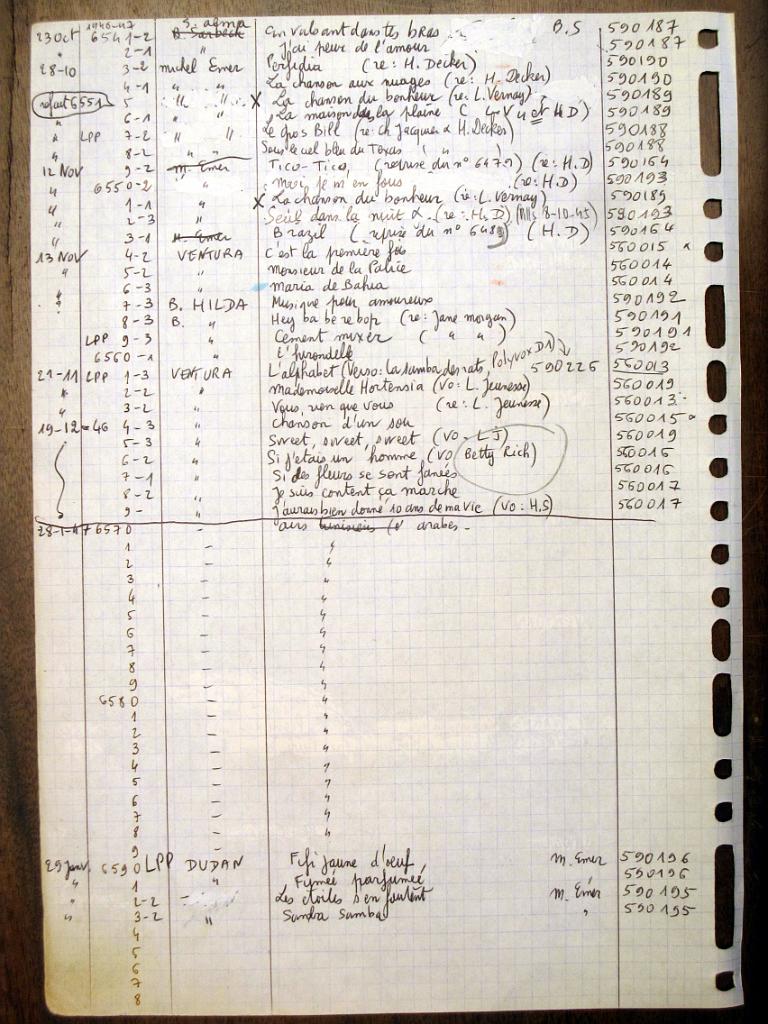 1946-47 S. alma
23 Oct 6541-2 B. Sarbeck En valsant dans tes bras B.S 590187
" 2-1 " J'ai peur de l'amour 590187
28-10 3-2 michel Emer Perfidia (re: H. Decker) 590190
4-1 " " La chanson aux nuages (re: H. Decker) 590190
refait 6551 5 " " X La chanson du bonheur (re: L. Vernay) 590189
6-1 " " La maison de la plaine 590189
" LPP 7-2 " " Le Gros Bill (re: ch Jacques & H. Decker) 590188
" 8-2 " Sous le ciel bleu du Texas ( " " ) 590188
12 Nov 9-2 M. Emer Tico-Tico, (refuse du n° 6479) (re: H.D) 590164
" 6550-2 " moi je m'en fous (re: H.D) 590193
" 1-1 " X La chanson du bonheur (re: L. Vernay) 590189
" 2-3 " Seul dans la nuit (re: H.D) 590193
" 3-1 M. Emer Brazil (refuse du n° 648) (H.D) 590164
13 Nov 4-2 VENTURA C'est la première fois 560015 x
" 5-2 " monsieur de la Palice 560014
" 6-3 " maria de Bahia 560014
" 7-3 B. HILDA Musique pour amoureux 590192
8-3 B. " Hey ba be re bop (re: Jane morgan) 590191
LPP 9-3 " Cement mixer ( " " ) 590191
6560-1 " L'hirondelle 590192
21-11 LPP 1-3 VENTURA L'alphabet (Verso: La samba des rats, Polyvox D1) 590226 560013
" 2-2 " mademoiselle Hortensia (vo: L. Jeunesse) 560019
" 3-2 " Vous, rien que vous (re: L. Jeunesse) 560013
19-12-46 4-3 " chanson d'un sou 560015
5-3 " Sweet, sweet, sweet (vo - LJ) 560019
6-2 " Si j'étais un homme (vo Betty Rich) 560016
7-1 " Si des fleurs se sont fanées 560016
8-2 " Je suis content ça marche 560017
9- " J'aurais bien donné 10 ans de ma vie (vo: H.S) 560017
28-1-47 6570 - airs tunisiens & arabes -
1 - "
2 - "
3 - "
4 - "
5 - "
6 - "
7 - "
8 - "
9 - "
6580 - "
1 - "
2 - "
3 - "
4 - "
5 - "
6 - "
7 - "
8 - "
9 -
29 Janv. 6590 LPP DUDAN Fifi jaune d'oeuf, M. Emer 590196
" 1 " Fumée parfumée 590196
" 2-2 - Les étoiles s'en foutent M. Emer 590195
" 3-2 " Sandra Samba " 590195
4
5
6
7
8